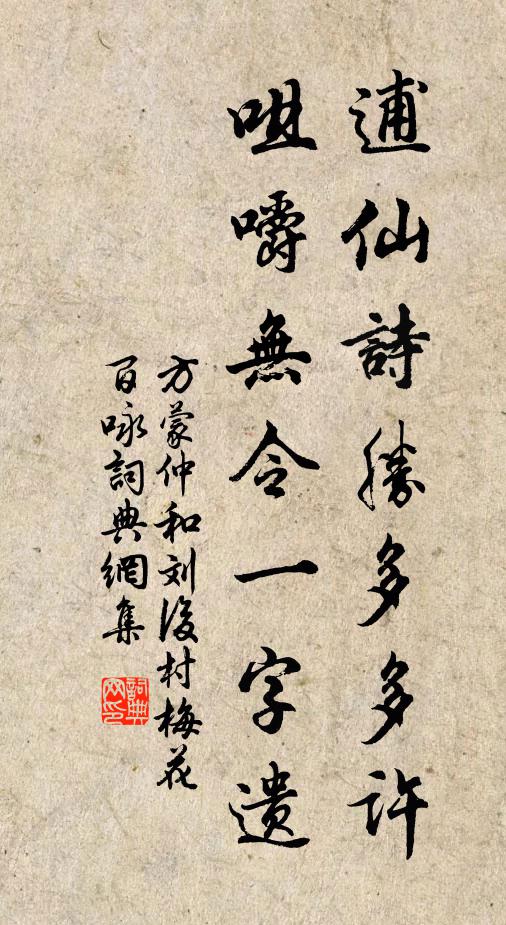 逋仙詩勝多多許
咀嚼無令一字遺
方蒙仲和刘後村梅花
百咏詞典網集
詞典网印